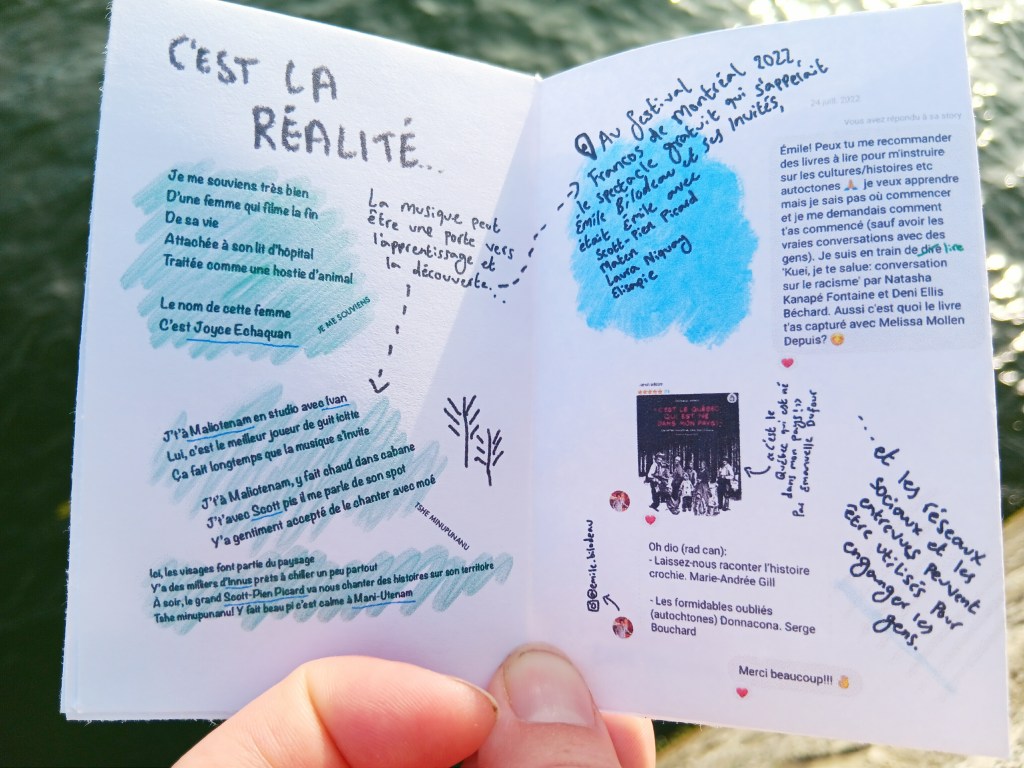 C'EST LA
RÉALITÉ...
Je me souviens très bien
D'une femme qui filme la fin
De sa vie
Attachée à son lit d'hôpital
Traitée comme une hostie d'animal
Le nom de cette femme
C'est Joyce Echaquan
JE ME SOUVIENS
La musique peut
être une porte vers
l'apprentissage et
la découverte...
J't'à Maliotenam en studio avec Ivan
Lui, c'est le meilleur joueur de guit icitte
Ça fait longtemps que la musique s'invite
J't'à Maliotenam, y fait chaud dans cabane
J't'avec Scott pis il me parle de son spot
Y'a gentiment accepté de le chanter avec moé
TSHE MINUPUNANU
Ici, les visages font partie du paysage
Y'a des milliers d'Innus prêts à chiller un peu partout
À soir, le grand Scott-Pien Picard va nous chanter des histoires sur son territoire
Tshe minupunanu! Y fait beau pi c'est calme à Mani-Utenam
Au festival
Francos de Montréal 2022,
le spectacle gratuit qui s'appelait
Émile Bilodeau et ses Invités,
était Émile avec
Scott-Pien Picard
Maten
Laura Niquay
Elisapie
24 juil. 2022
Vous avez répondu à sa story
Émile! Peux tu me recommander
des livres à lire pour m'instruire
sur les cultures/histoires etc
autoctones 🙏 je veux apprendre
mais je sais pas où commencer
et je me demandais comment
t'as commencé (sauf avoir les
vraies conversations avec des
gens). Je suis en train de dire lire
'Kuei, je te salue: conversation
sur le racisme' par Natasha
Kanapé Fontaine et Deni Ellis
Béchard. Aussi c'est quoi le livre
t'as capturé avec Melissa Mollen
Depuis? 😍
"C'EST LE QUÉBEC
QUI EST NÉ
DANS MON PAYS!"
«c'est le
Québec qui est né
dans mon pays!»
Par Emanuelle Dufour
@emile.bilodeau
Oh dio (rad can):
- Laissez-nous raconter l'histoire
crochie. Marie-Andrée Gill
- Les formidables oubliés
(autochtones) Donnacona. Serge
Bouchard
Merci beaucoup!!!
... et les réseaux
sociaux et les
entrevues peuvent
être utilisés pour
enganger les
gens.